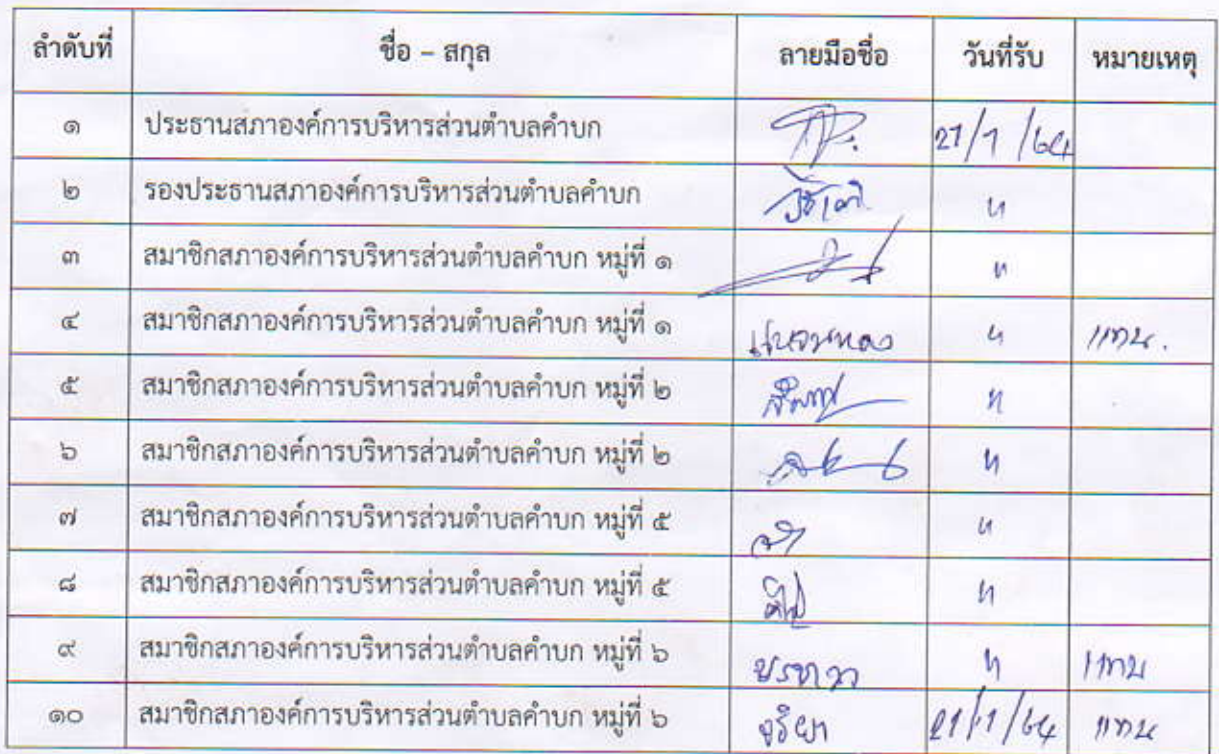 ลำดับที่ ชื่อ – สกุล ลายมือชื่อ วันที่รับ หมายเหตุ
๑ ประธานสภาองค์การบริหารส่วนตำบลคำบก 21/1/64
๒ รองประธานสภาองค์การบริหารส่วนตำบลคำบก "
๓ สมาชิกสภาองค์การบริหารส่วนตำบลคำบก หมู่ที่ ๑ "
๔ สมาชิกสภาองค์การบริหารส่วนตำบลคำบก หมู่ที่ ๑ " แทน.
๕ สมาชิกสภาองค์การบริหารส่วนตำบลคำบก หมู่ที่ ๒ "
๖ สมาชิกสภาองค์การบริหารส่วนตำบลคำบก หมู่ที่ ๒ "
๗ สมาชิกสภาองค์การบริหารส่วนตำบลคำบก หมู่ที่ ๕ "
๘ สมาชิกสภาองค์การบริหารส่วนตำบลคำบก หมู่ที่ ๕ "
๙ สมาชิกสภาองค์การบริหารส่วนตำบลคำบก หมู่ที่ ๖ " แทน
๑๐ สมาชิกสภาองค์การบริหารส่วนตำบลคำบก หมู่ที่ ๖ จริยา 21/1/64 แทน